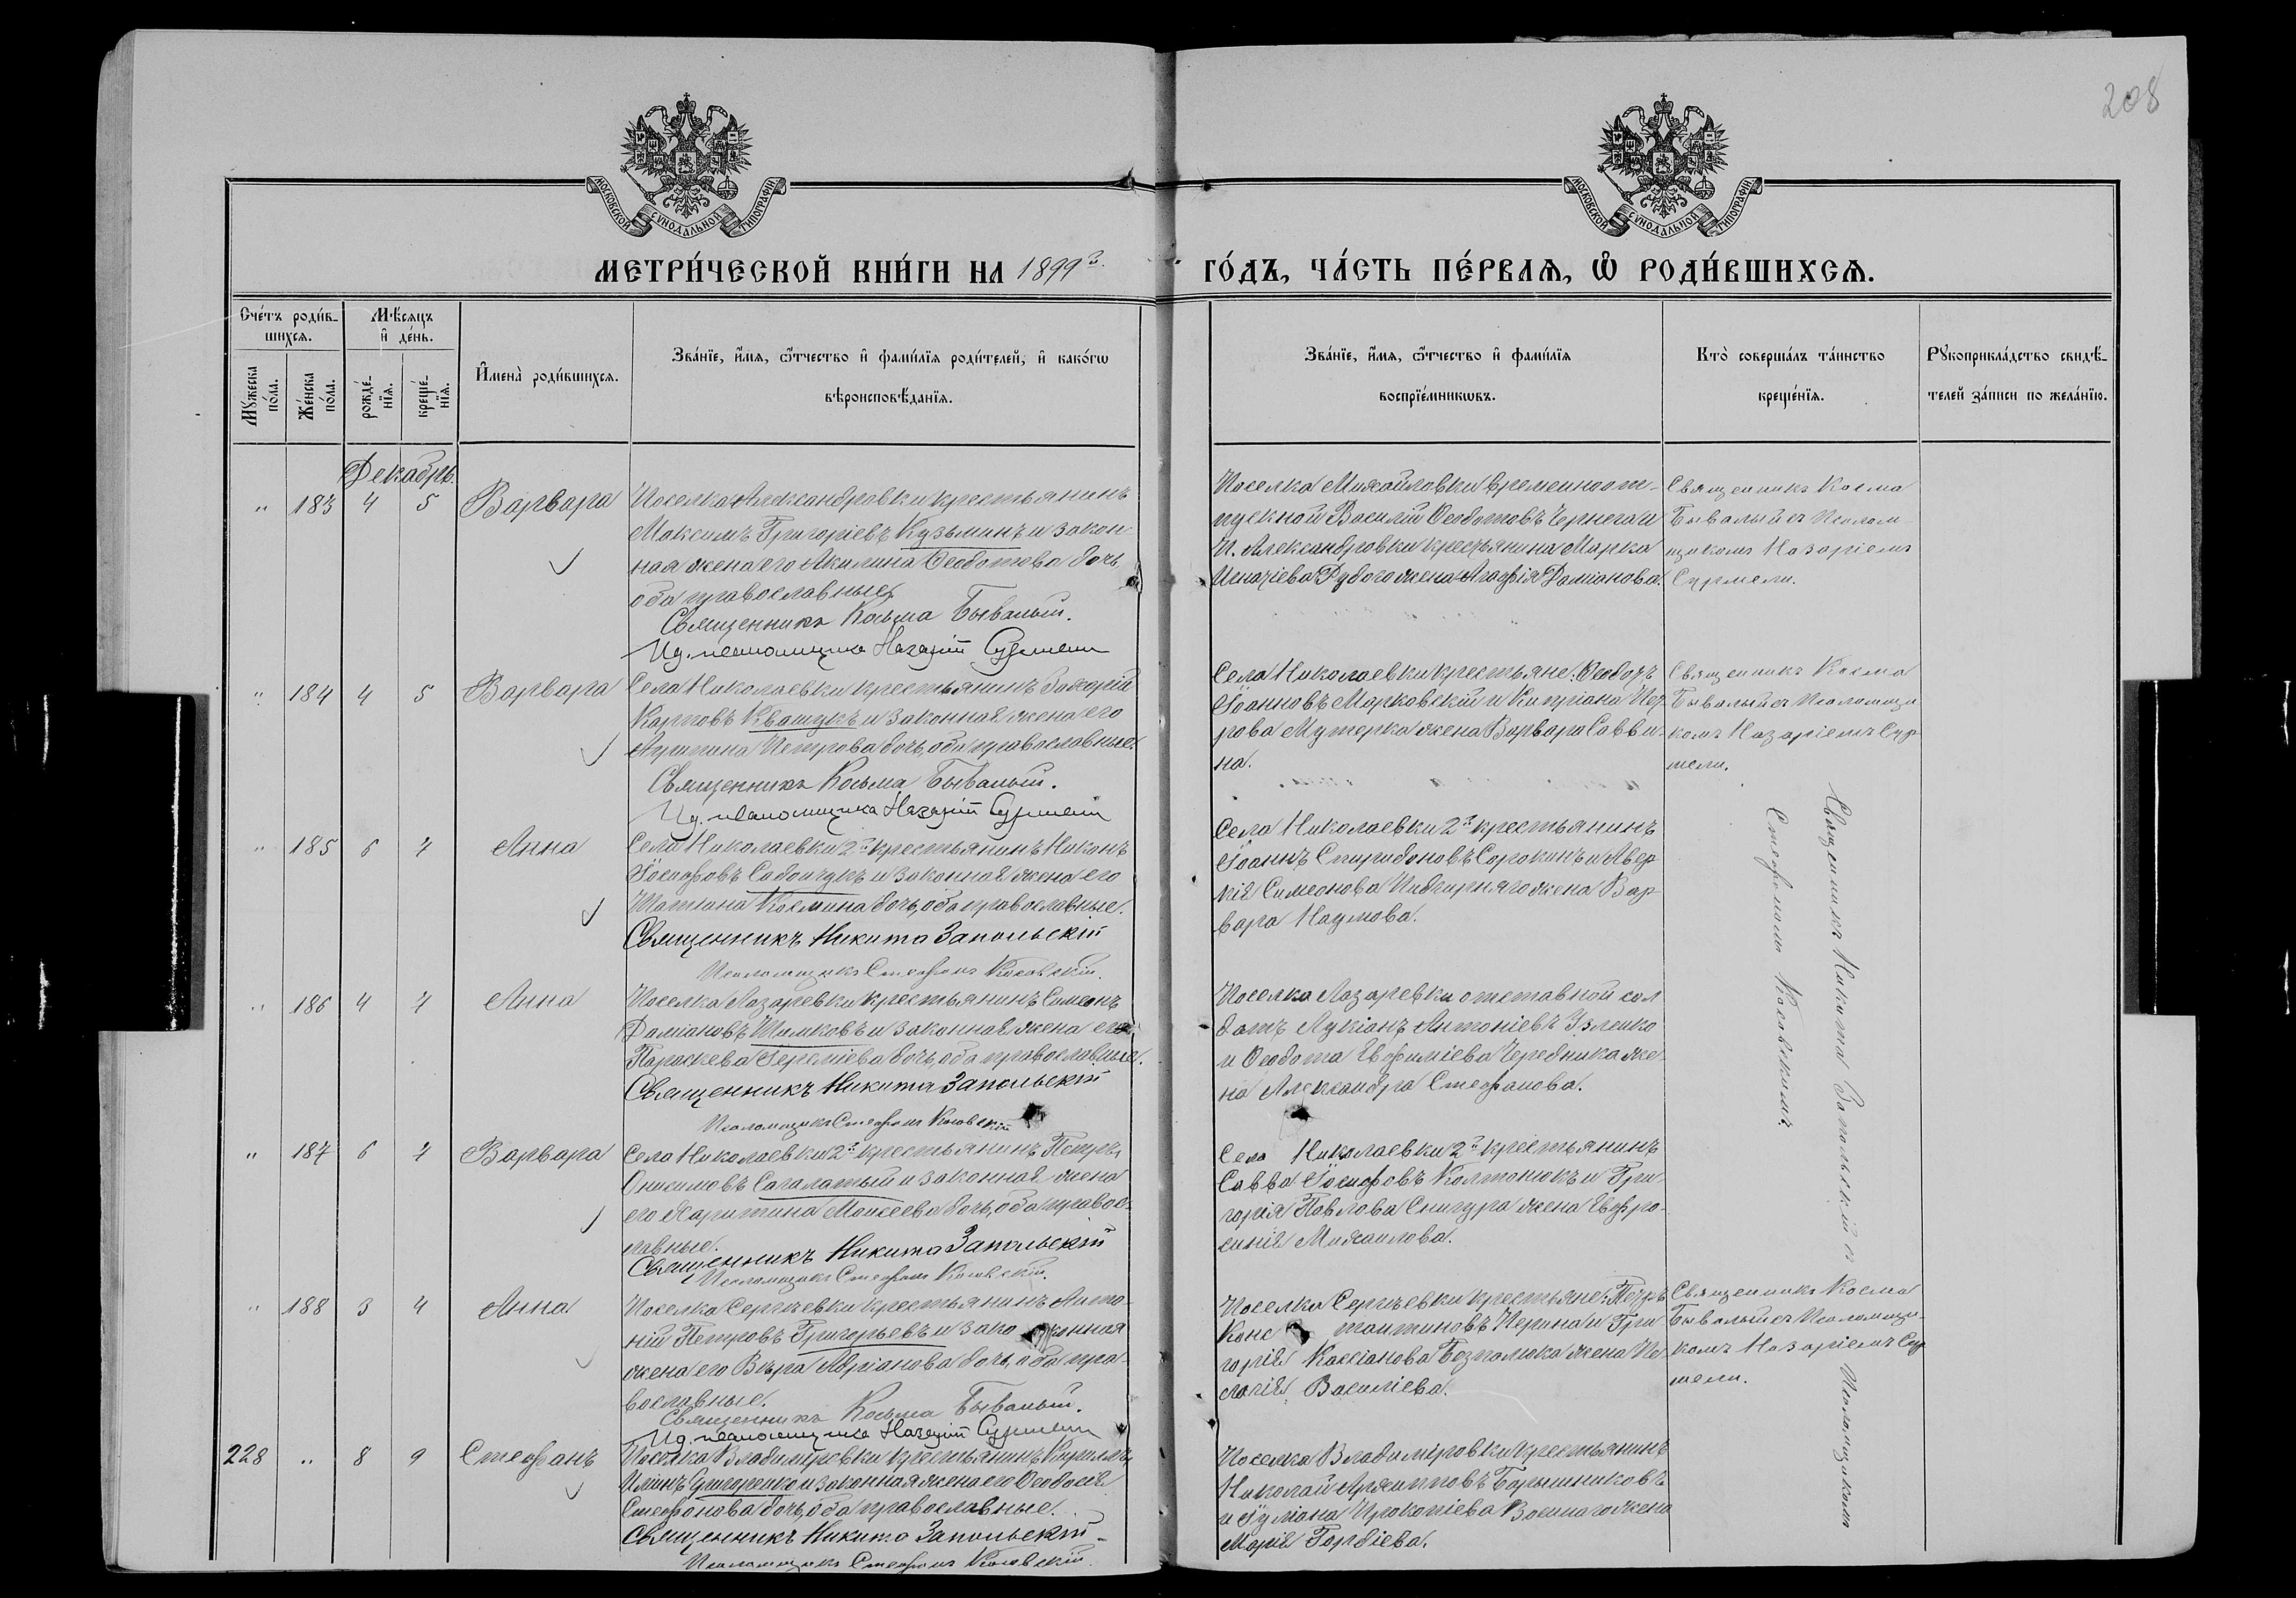 208
МОСКОВСКОЙ СѴНОДАЛЬНОЙ ТИПОГРАФІИ
МОСКОВСКОЙ СѴНОДАЛЬНОЙ ТИПОГРАФІИ
МЕТРИ́ЧЕСКОЙ КНИ́ГИ НА 1899 г. ГО́ДЪ, ЧА́СТЬ ПЕ́РВАѦ, Ѡ҆ РОДИ́ВШИХСѦ.
Сче́тъ роди́в-
шихсѧ.
Мꙋжеска
по́ла.
Же́нска
по́ла.
Мѣ́сѧцъ
и҆ де́нь.
рожде́-
нїѧ.
креще́-
нїѧ.
И҆мена̀ роди́вшихсѧ.
Зва́нїе, и҆́мѧ, ѻ҆́тчество и҆ фами́лїѧ роди́телей, и҆ како́гѡ
вѣроисповѣ́данїѧ.
Зва́нїе, и҆́мѧ, ѻ҆́тчество и҆ фами́лїѧ
воспрїе́мникѡвъ.
Кто̀ соверша́лъ та́инство
креще́нїѧ.
Рꙋкоприкла́дство свидѣ́-
телей за́писи по жела́нїю.
Декабрь.
" 183 4 5 Варвара
Поселка Александровки крестьянинъ
Максимъ Григоріевъ Кузьминъ и закон-
ная жена его Акилина Ѳеодотова дочь
оба православные.
Священникъ Косьма Бывалый.
Ид. псаломщика Назарій Сурмели
Поселка Михайловки временноот-
пускной Василій Ѳеодотовъ Чернега и
П. Александровки крестьянина Марка
Игнатіева Рудого жена Агафія Даміанова.
Священникъ Косма
Бывалый съ Псалом-
щикомъ Назаріемъ
Сурмели.
" 184 4 5 Варвара
Села Николаевки крестьянинъ Захарій
Карповъ Квашукъ и законная жена его
Агрипина Петрова дочь, оба православные.
Священникъ Косьма Бывалый.
Ид. псаломщика Назарій Сурмели
Села Николаевки крестьяне: Ѳеодоръ
Іоанновъ Марковскій и Кипріана Пет-
рова Мутерка жена Варвара Савви-
на.
Священникъ Косма
Бывалый съ Псаломщи-
комъ Назаріемъ Сур-
мели.
" 185 6 7 Анна
Села Николаевки 2й крестьянинъ Никонъ
Іосифовъ Садомчукъ и законная жена его
Татіана Космина дочь, оба православные.
Священникъ Никита Запольскій
Псаломщикъ Стефанъ Косовскій.
Села Николаевки 2й крестьянинъ
Іоаннъ Спиридоновъ Сорокинъ и Авер-
кія Симеонова Пидгирняго жена Вар-
вара Наумова.
Священникъ Никита Запольскій съ Псаломщикомъ
Стефаномъ Косовскимъ.
" 186 4 7 Анна
Поселка Лазаревки крестьянинъ Симеонъ
Даміановъ Шимковъ и законная жена его
Параскева Іереміева дочь, оба православные.
Священникъ Никита Запольскій
Псаломщикъ Стефанъ Косовскій
Поселка Лазаревки отставной сол-
датъ Лукіанъ Антоніевъ Зленко
и Ѳеодота Евфиміева Чередника же-
на Александра Стефанова.
" 187 6 7 Варвара
Села Николаевки 2й крестьянинъ Петръ
Онисимовъ Сагалатый и законная жена
его Харитина Моисеева дочь, оба правос-
лавные.
Священникъ Никита Запольскій
Псаломщикъ Стефанъ Косовскій.
Села Николаевки 2й крестьянинъ
Савва Іосифовъ Колтонюкъ и Гри-
горія Павлова Снигура жена Евфро-
синія Михаилова.
" 188 3 4 Анна
Поселка Сергѣевки крестьянинъ Анто-
ній Петровъ Григорьевъ и законная
жена его Вѣра Адріанова дочь, оба пра-
вославные.
Священникъ Косьма Бывалый.
Ид. псаломщика Назарій Сурмели
Поселка Сергѣевки крестьяне: Петръ
Константиновъ Перина и Гри-
горія Кассіанова Безпалюка жена Пе-
лагія Василіева.
Священникъ Косма
Бывалый съ Псаломщи-
комъ Назаріемъ Сур-
мели.
228 " 8 9 Стефанъ
Поселка Владиміровки крестьянинъ Кириллъ
Илiинъ Григоренко и законная жена его Ѳеодосія
Стефанова дочь, оба православные.
Священникъ Никита Запольскій
Псаломщикъ Стефанъ Косовскій.
Поселка Владиміровки крестьянинъ
Николай Архипповъ Барышниковъ
и Іуліана Прокопіева Военнаго жена
Марія Гордіева.